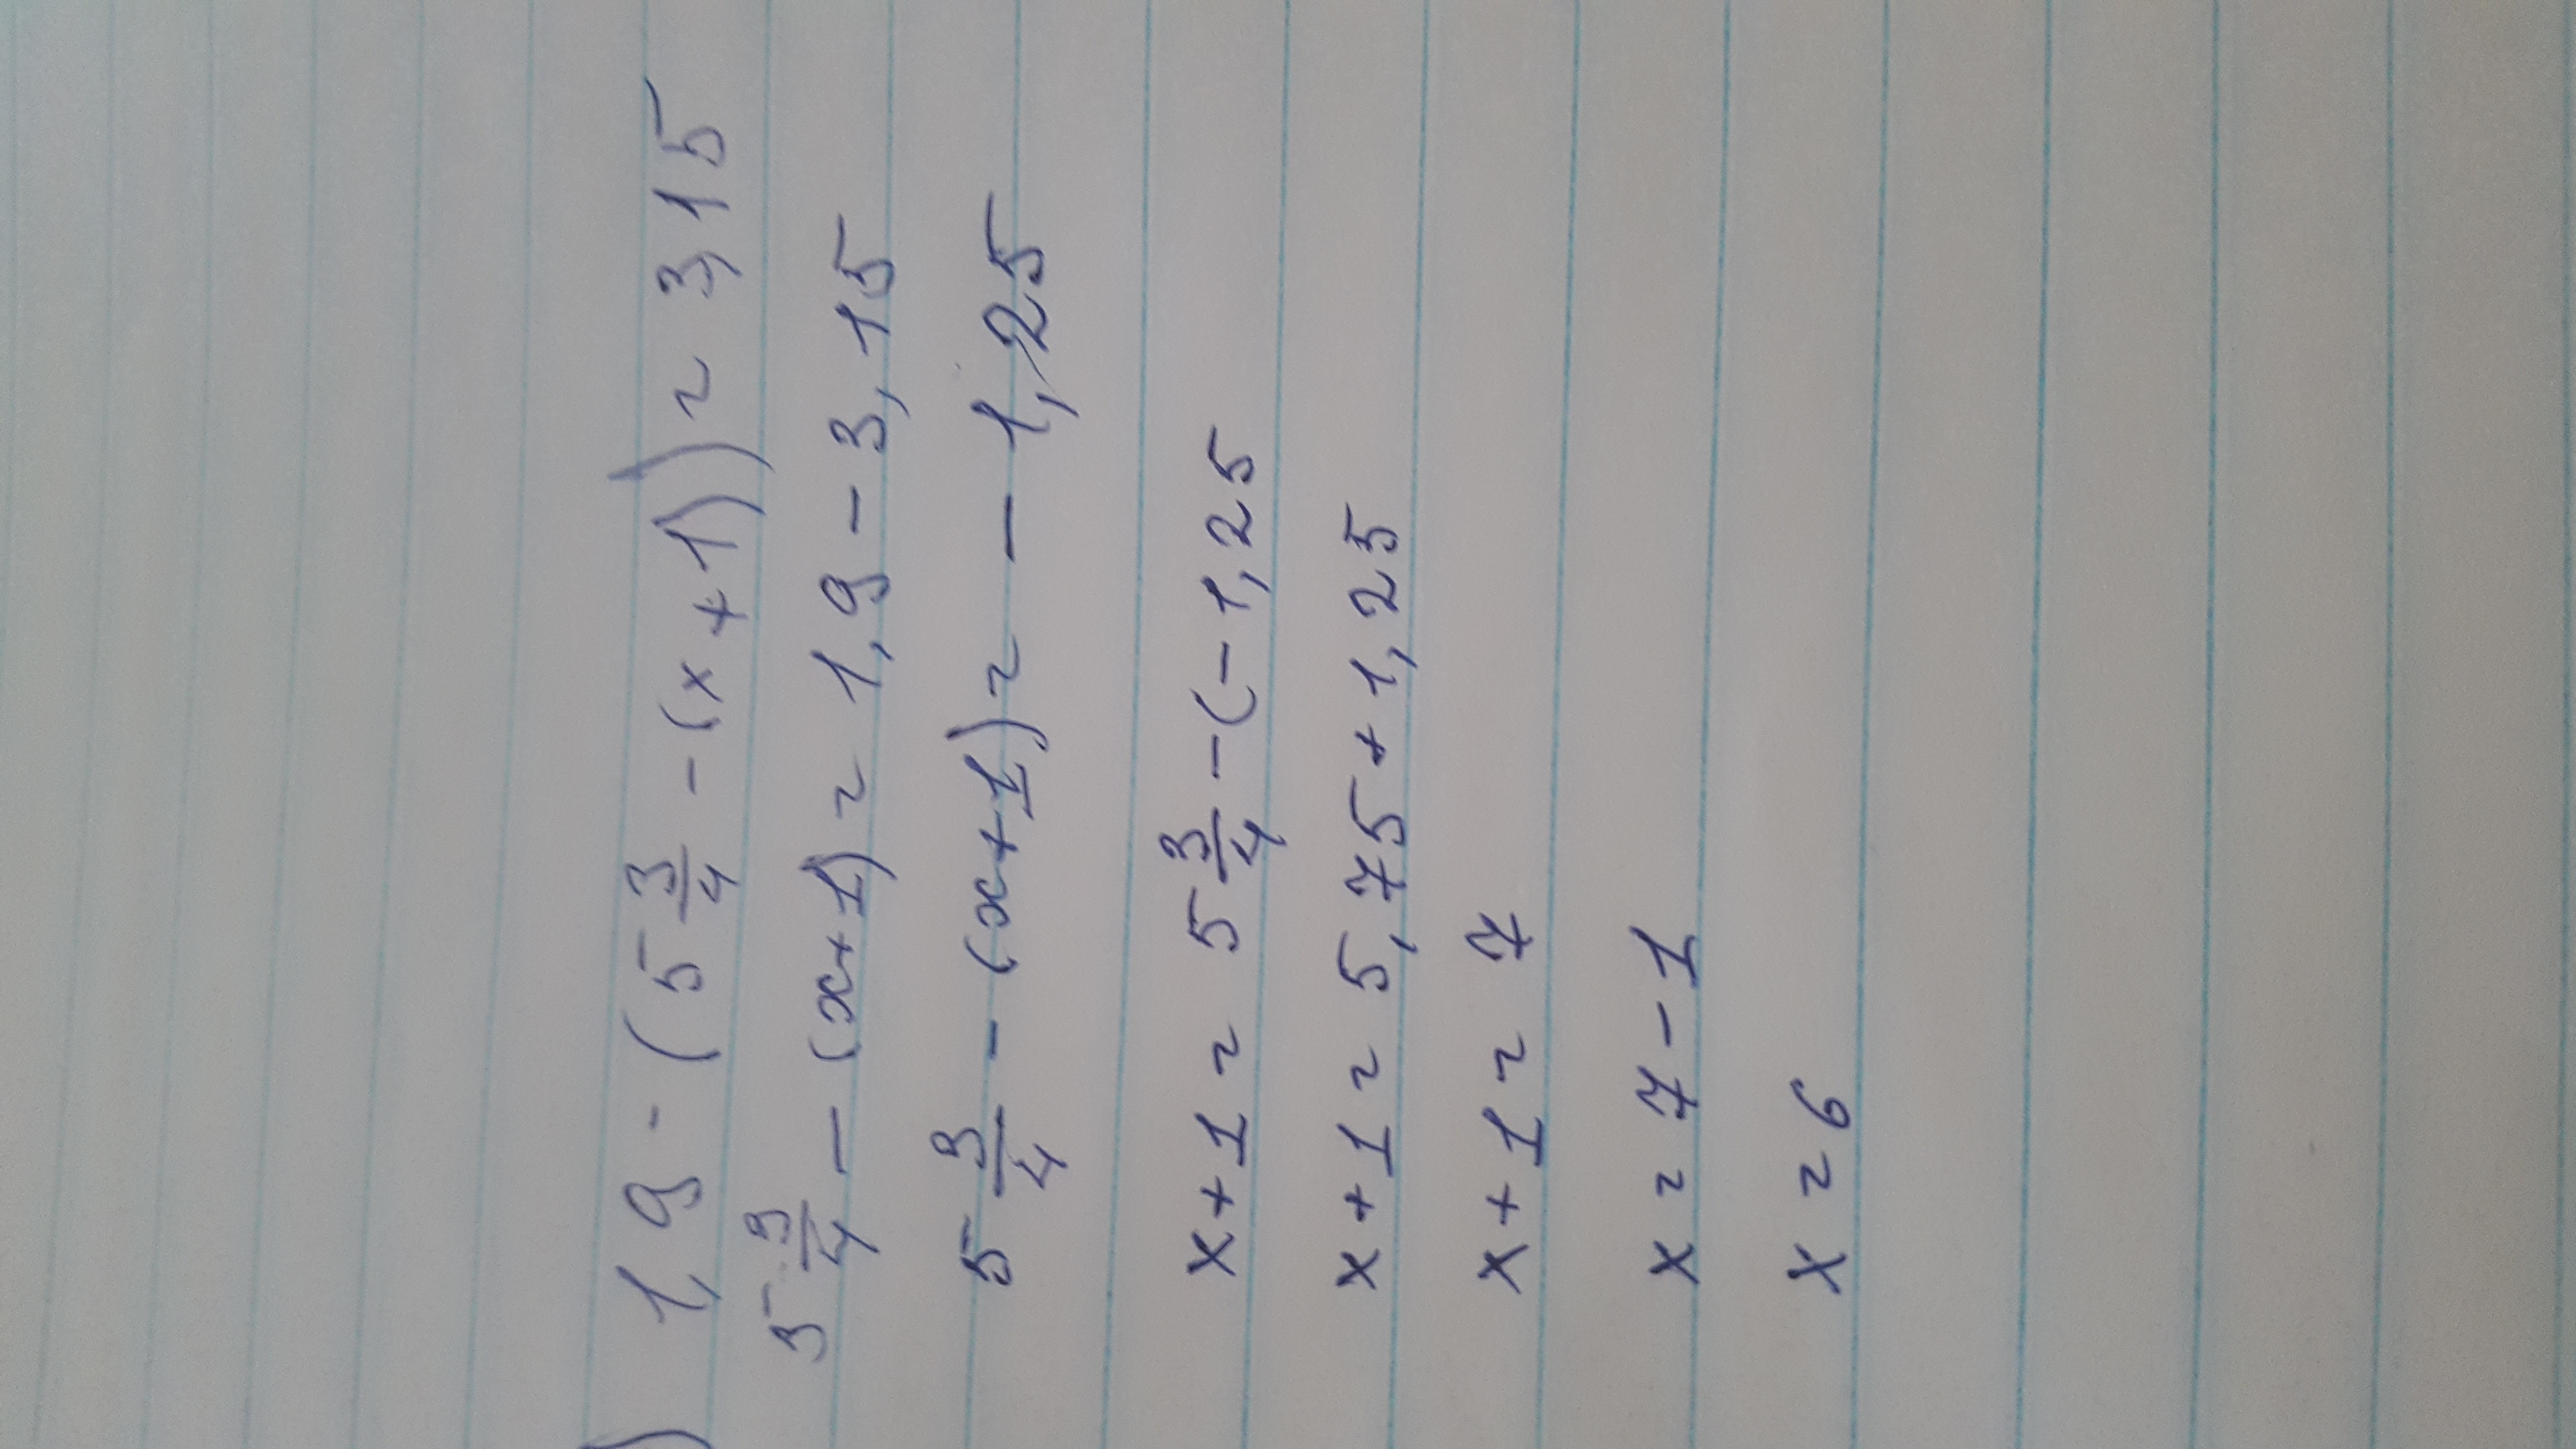 ) 1,9 - (5 3/4 - (x + 1)) = 3,15
5 3/4 - (x+1) = 1,9 - 3,15
5 3/4 - (x+1) = - 1,25
x+1 = 5 3/4 - (-1,25
x+1 = 5,75+1,25
x+1 = 7
x = 7-1
x = 6